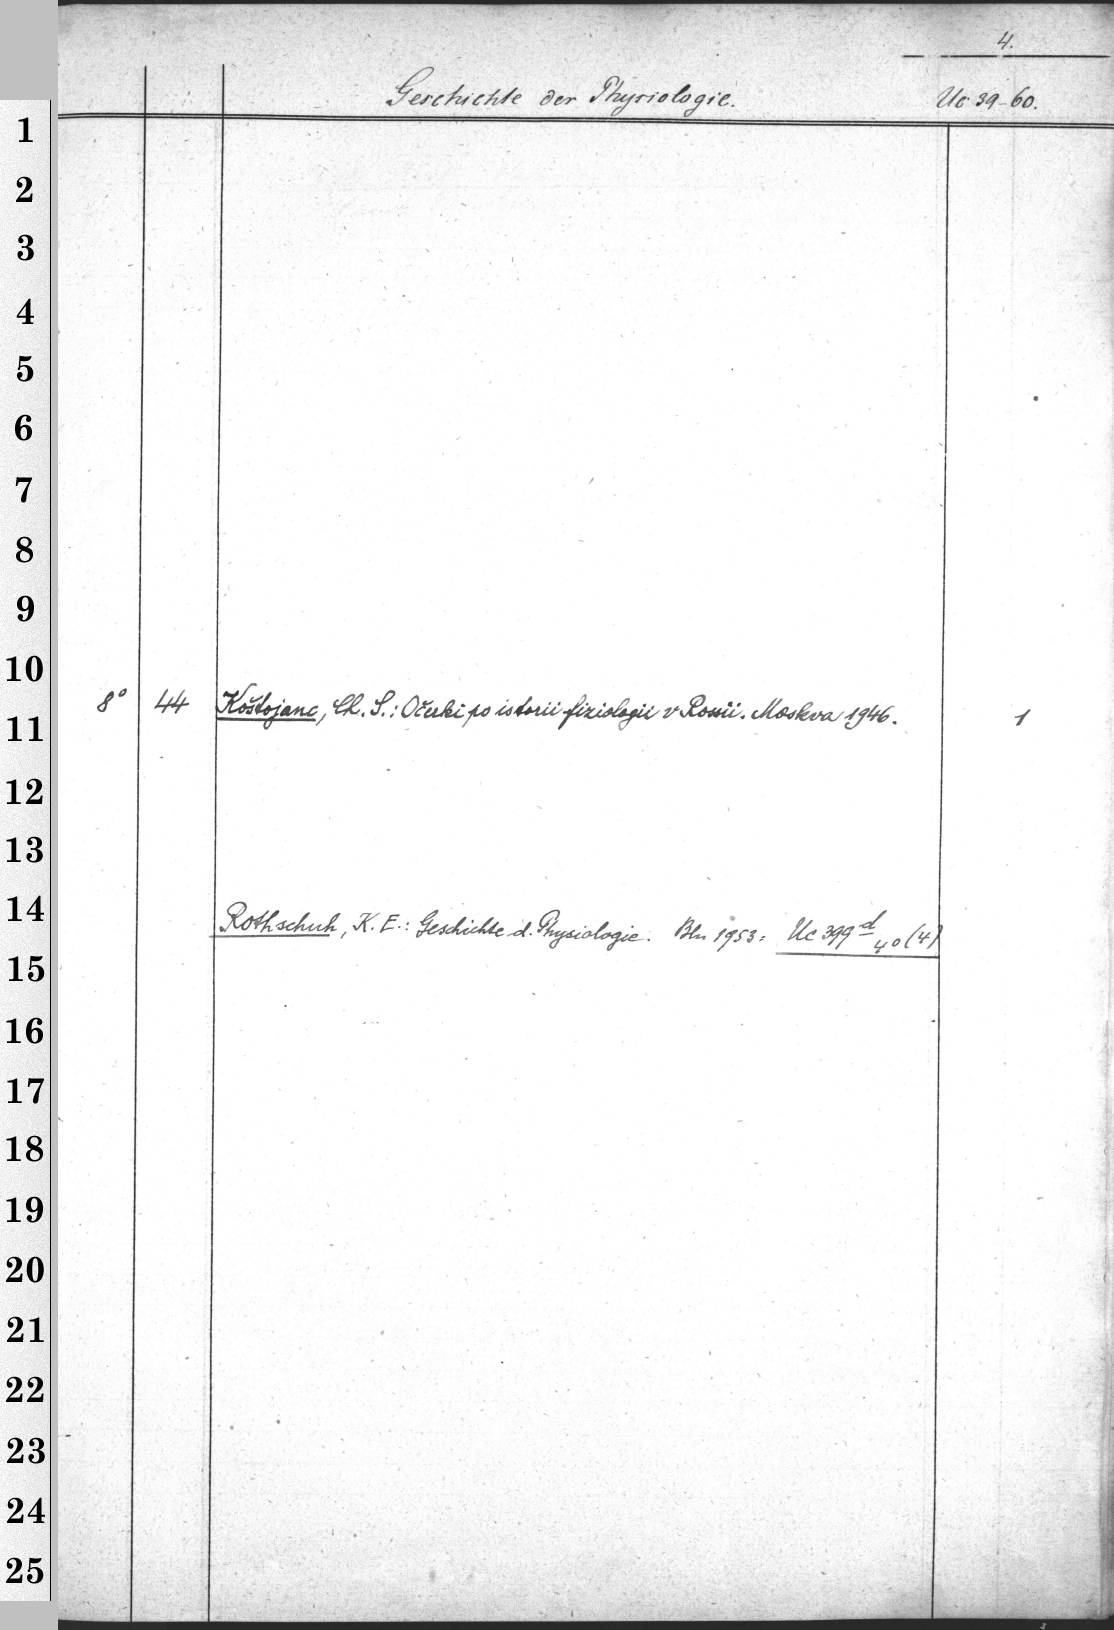 4.
Geschichte der Physiologie. Uc 39-60.
1
2
3
4
5
6
7
8
9
10
8° 44 Koštojanc, Ch. S.: Očerki po istorii fiziologii v Rossii. Moskva 1946. 1
11
12
13
14
Rothschuh, K. E.: Geschichte d. Physiologie. Bln 1953: Uc 399 d 4° (4)
15
16
17
18
19
20
21
22
23
24
25